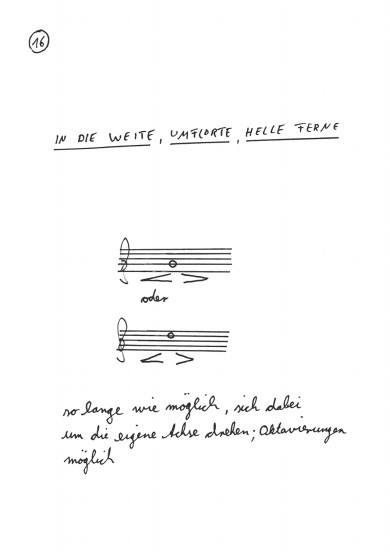 16
IN DIE WEITE, UMFLORTE, HELLE FERNE
oder
so lange wie möglich, sich dabei
um die eigene Achse drehen; Oktavierungen
möglich